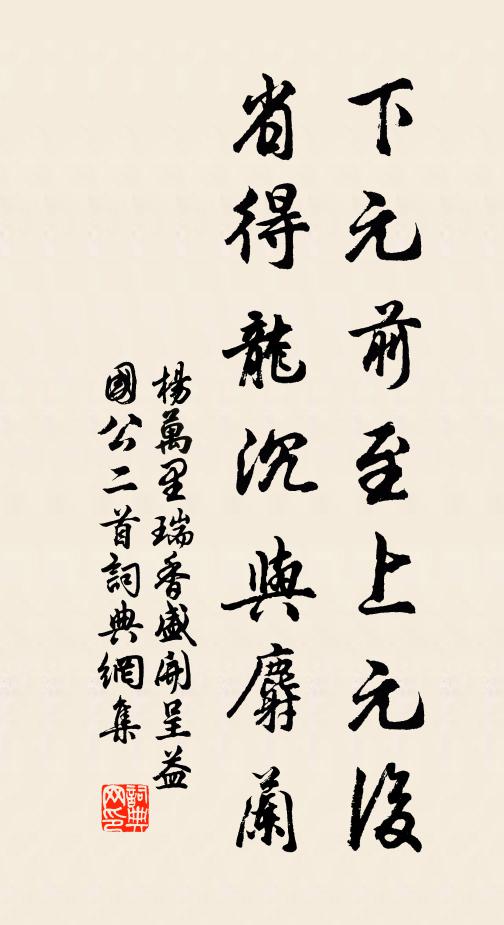 下元前至上元後
省得龍沉與麝蘭
楊萬里瑞香盛開呈益
國公二首詞典網集
詞典
网印